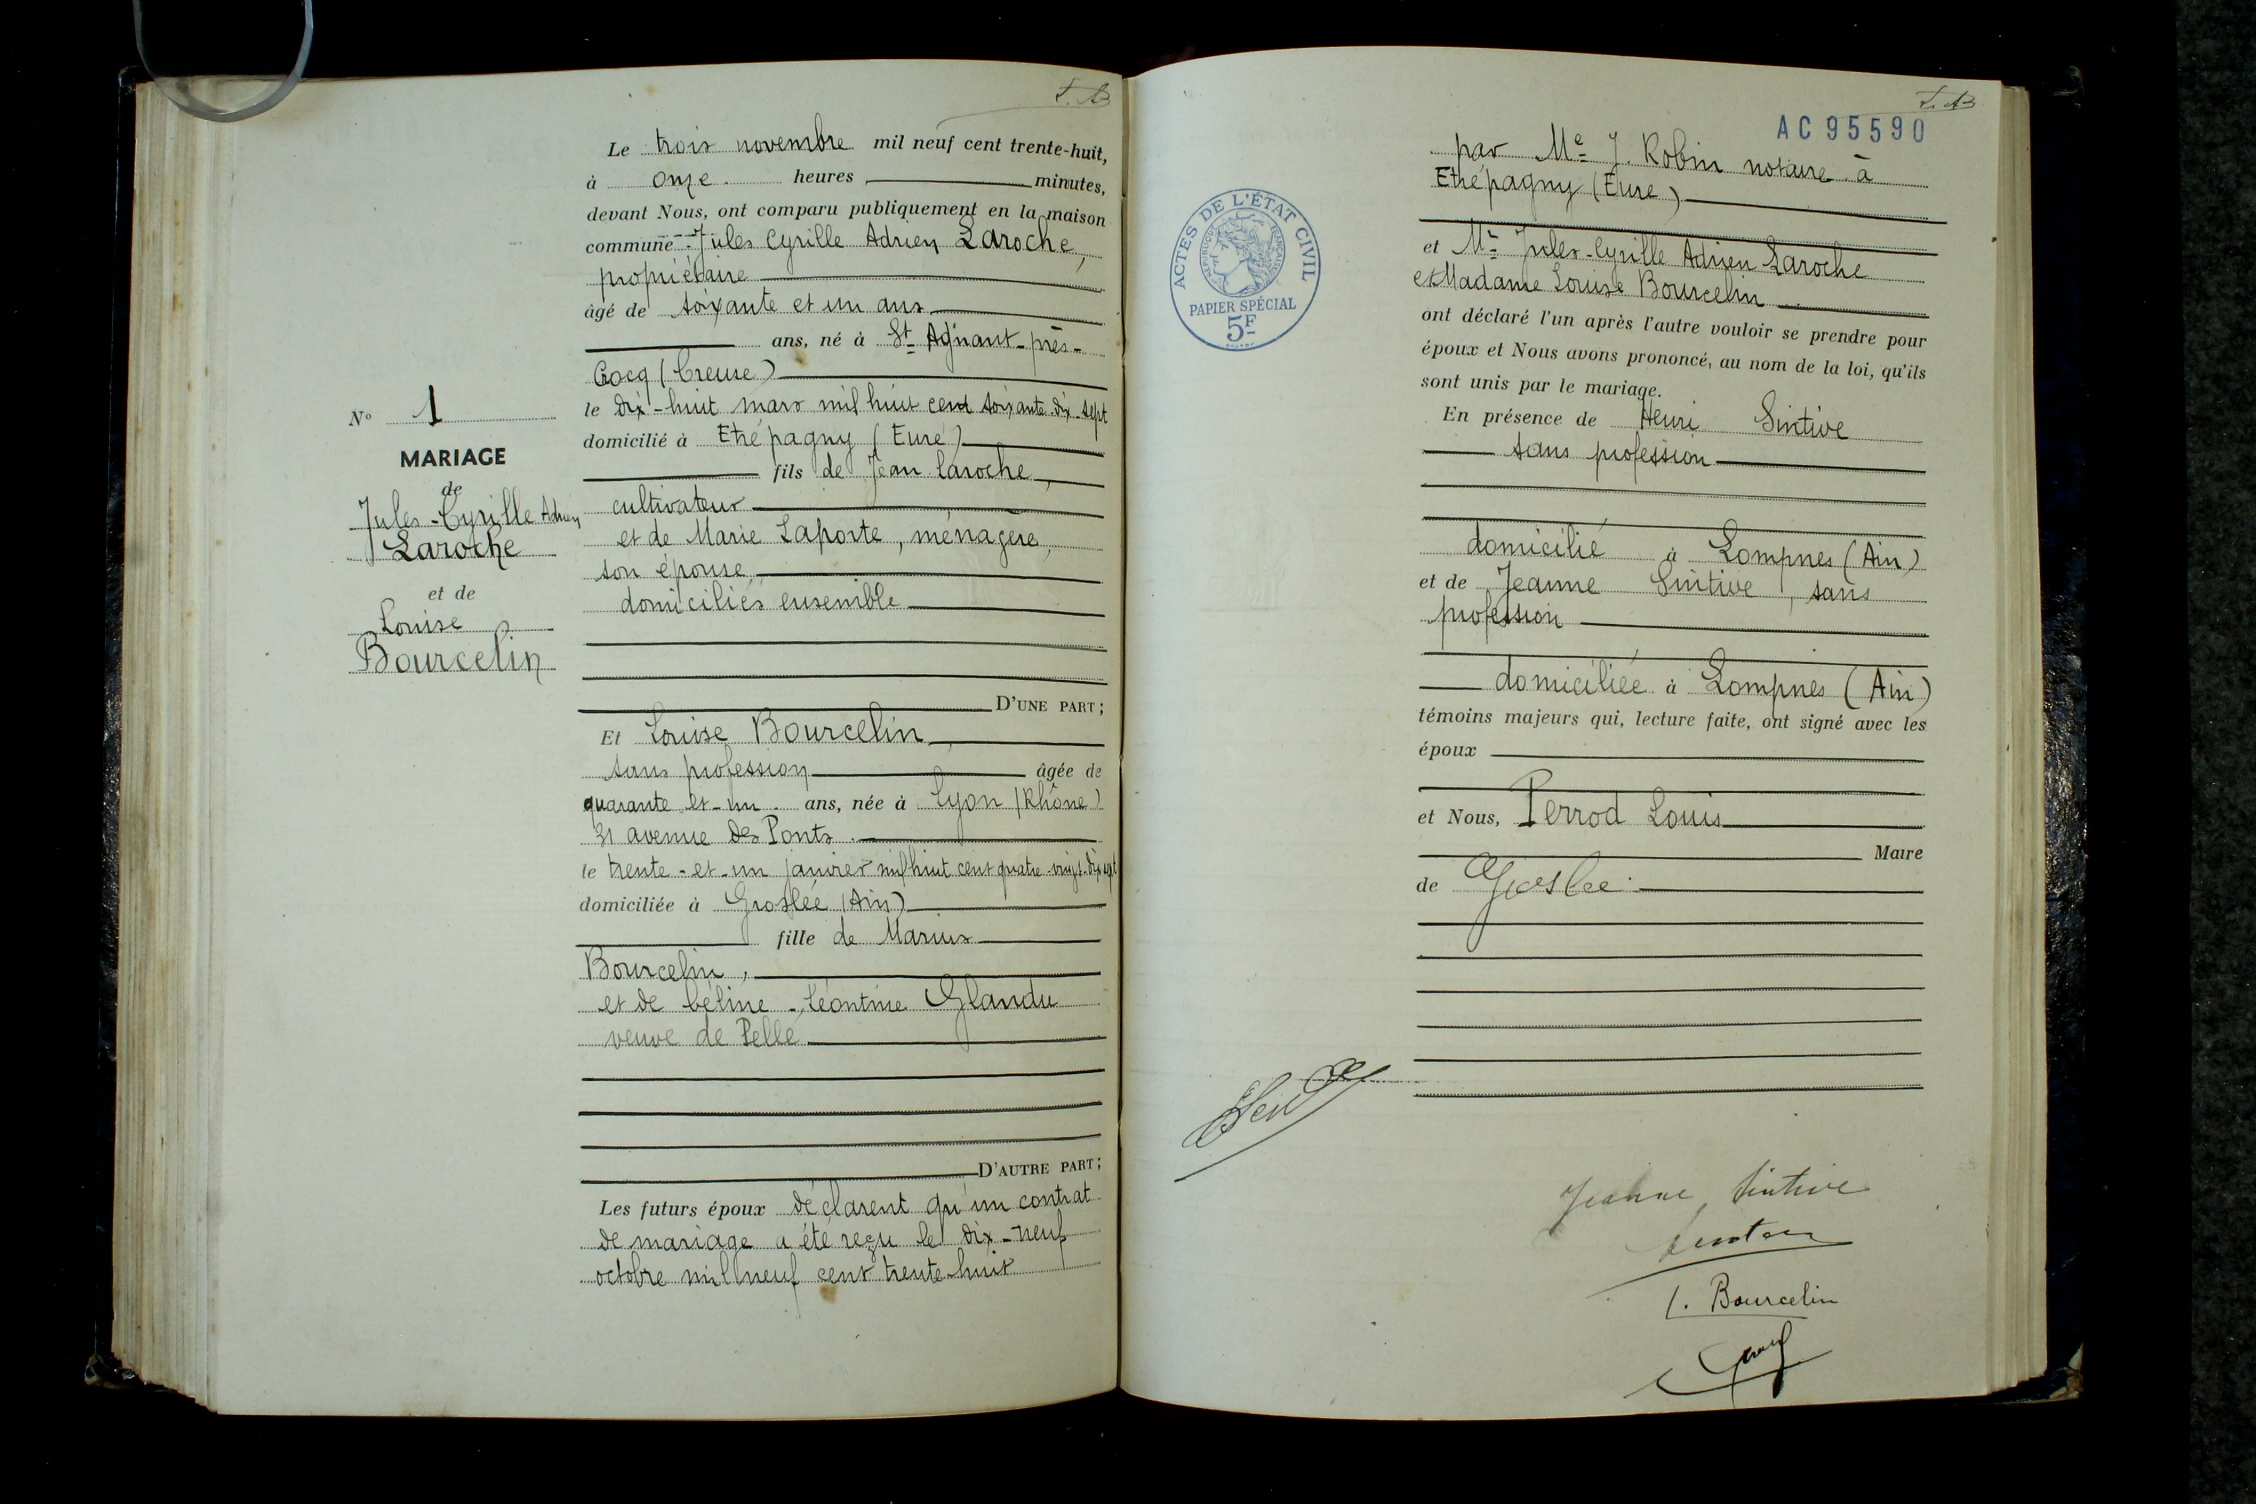 Le trois novembre mil neuf cent trente-huit,
à onze heures minutes,
devant Nous, ont comparu publiquement en la maison
commune Jules Cyrille Adrien Laroche,
propriétaire
âgé de soixante et un ans
ans, né à St Agnant-près-
Crocq (Creuse)
le dix-huit mars mil huit cent soixante-dix-sept
domicilié à Etrépagny (Eure)
fils de Jean Laroche,
cultivateur
et de Marie Laporte, ménagère,
son épouse,
domiciliés ensemble
D'UNE PART;
N° 1
MARIAGE
de
Jules-Cyrille Adrien
Laroche
et de
Louise
Bourcelin
Et Louise Bourcelin
sans profession âgée de
quarante-et-un ans, née à Lyon (Rhône)
31 avenue des Ponts
le trente-et-un janvier mil huit cent quatre-vingt-dix-sept
domiciliée à Groslée (Ain)
fille de Marius
Bourcelin,
et de Céline-Léontine Glandu
veuve de Pelle
D'AUTRE PART;
Les futurs époux déclarent qu'un contrat
de mariage a été reçu le dix-neuf
octobre mil neuf cent trente-huit
AC 95590
par Me J. Robin notaire à
Etrépagny (Eure)
ACTES DE L'ÉTAT CIVIL
RÉPUBLIQUE FRANÇAISE
PAPIER SPÉCIAL
5F
et Mr Jules-Cyrille Adrien Laroche
et Madame Louise Bourcelin
ont déclaré l'un après l'autre vouloir se prendre pour
époux et Nous avons prononcé, au nom de la loi, qu'ils
sont unis par le mariage.
En présence de Henri Sintive
sans profession
domicilié à Lompnes (Ain)
et de Jeanne Sintive, sans
profession
domiciliée à Lompnes (Ain)
témoins majeurs qui, lecture faite, ont signé avec les
époux
et Nous, Perrod Louis
Maire
de Groslée
Jeanne Sintive
L. Bourcelin